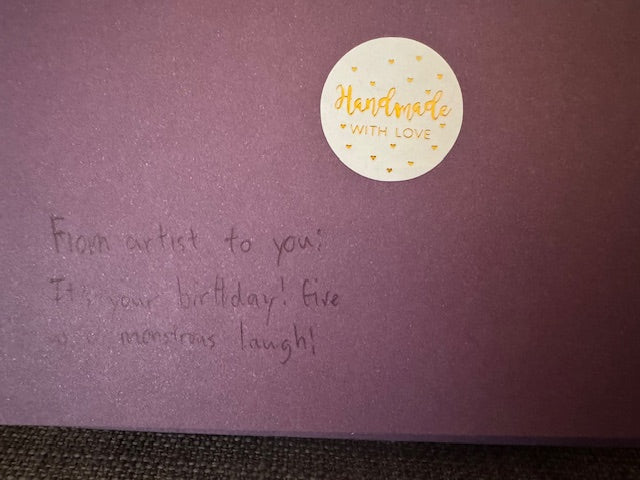 Handmade
WITH LOVE
From artist to you:
It's your birthday! Give
monstrous laugh!